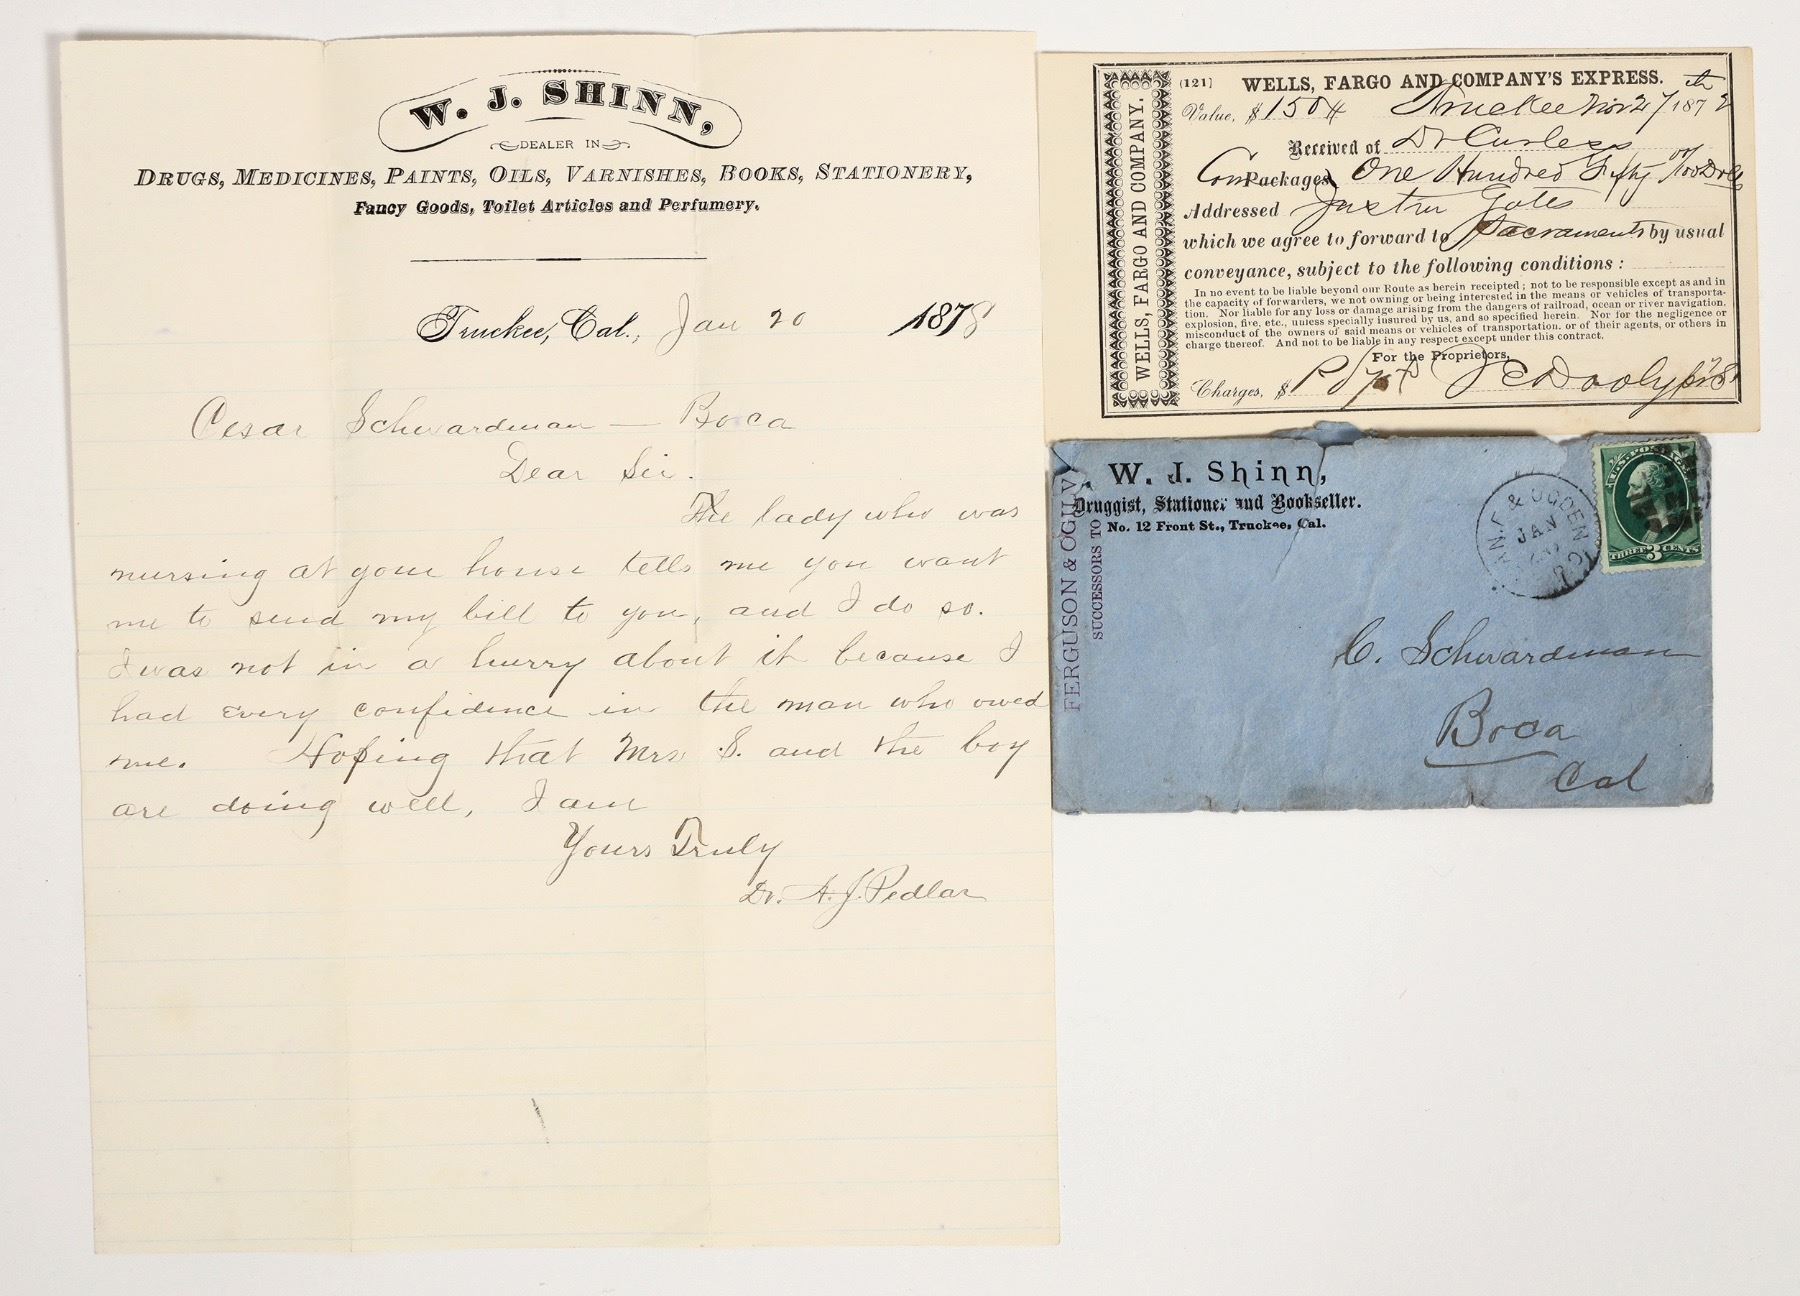 W. J. SHINN,
DEALER IN
DRUGS, MEDICINES, PAINTS, OILS, VARNISHES, BOOKS, STATIONERY,
Fancy Goods, Toilet Articles and Perfumery.
Truckee, Cal., Jan 20 1878
Cesar Schwardman — Boca
Dear Sir.
The lady who was
nursing at your house tells me you want
me to send my bill to you, and I do so.
I was not in a hurry about it because I
had every confidence in the man who owed
me. Hoping that Mrs S. and the boy
are doing well, I am
Yours Truly
Dr. A. J. Pedlar
WELLS, FARGO AND COMPANY. WELLS, FARGO AND COMPANY.
(121) WELLS, FARGO AND COMPANY'S EXPRESS.
Value, $ 150 Truckee Nov 27th 1872
Received of Dr Curless
Packages One Hundred Fifty
Addressed Justin Gates
which we agree to forward to Sacramento by usual
conveyance, subject to the following conditions:
In no event to be liable beyond our Route as herein receipted; not to be responsible except as and in
the capacity of forwarders, we not owning or being interested in the means or vehicles of transporta-
tion. Nor liable for any loss or damage arising from the dangers of railroad, ocean or river navigation,
explosion, fire, etc., unless specially insured by us, and so specified herein. Nor for the negligence or
misconduct of the owners of said means or vehicles of transportation, or of their agents, or others in
charge thereof. And not to be liable in any respect except under this contract.
For the Proprietors,
Charges, $
W. J. Shinn,
Druggist, Stationer and Bookseller.
No. 12 Front St., Truckee, Cal.
FERGUSON & OGILVY
SUCCESSORS TO
& OGDEN
JAN
U.S. POSTAGE
THREE 3 CENTS
C. Schwardman
Boca
Cal